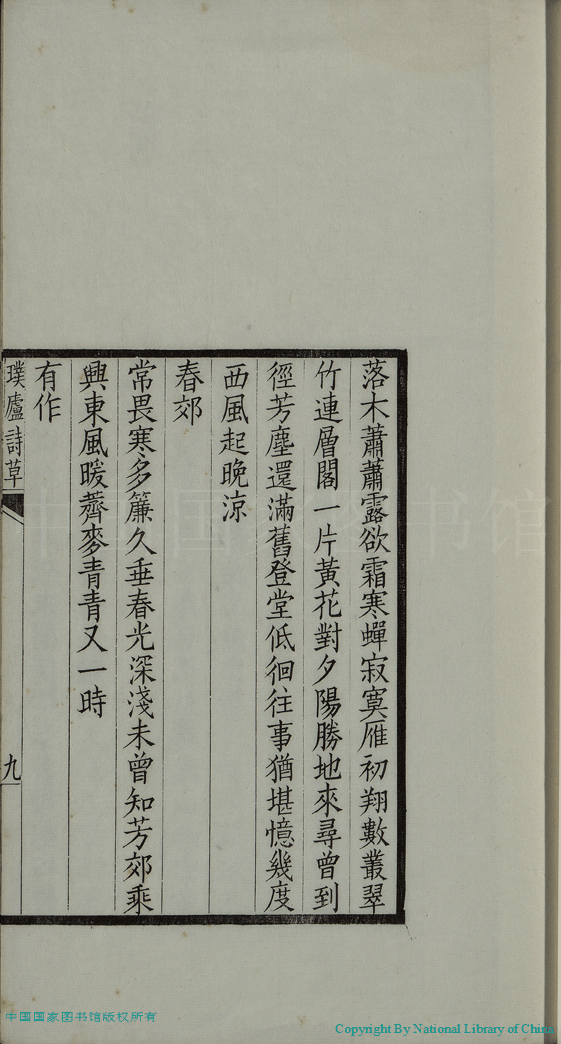 落木蕭蕭露欲霜寒蟬寂寞雁初翔數叢翠
竹連層閣一片黃花對夕陽勝地來尋曾到
徑芳塵還滿舊登堂低徊往事猶堪憶幾度
西風起晚涼
春郊
常畏寒多簾久垂春光深淺未曾知芳郊乘
興東風暖薺麥青青又一時
有作
璞廬詩草
九
中国国家图书馆版权所有
Copyright By National Library of China